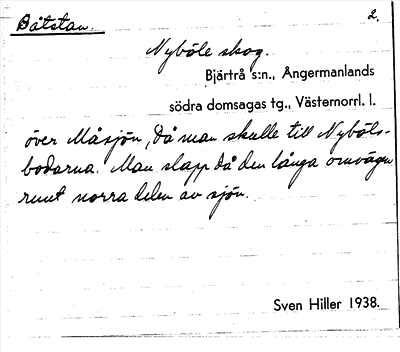 Båtstan. 2.
Nyböle skog.
Bjärtrå s:n., Ångermanlands
södra domsagas tg., Västernorrl. l.
över Måsjön, då man skulle till Nyböls-
bodarna. Man slapp då den långa omvägen
runt norra delen av sjön.
Sven Hiller 1938.